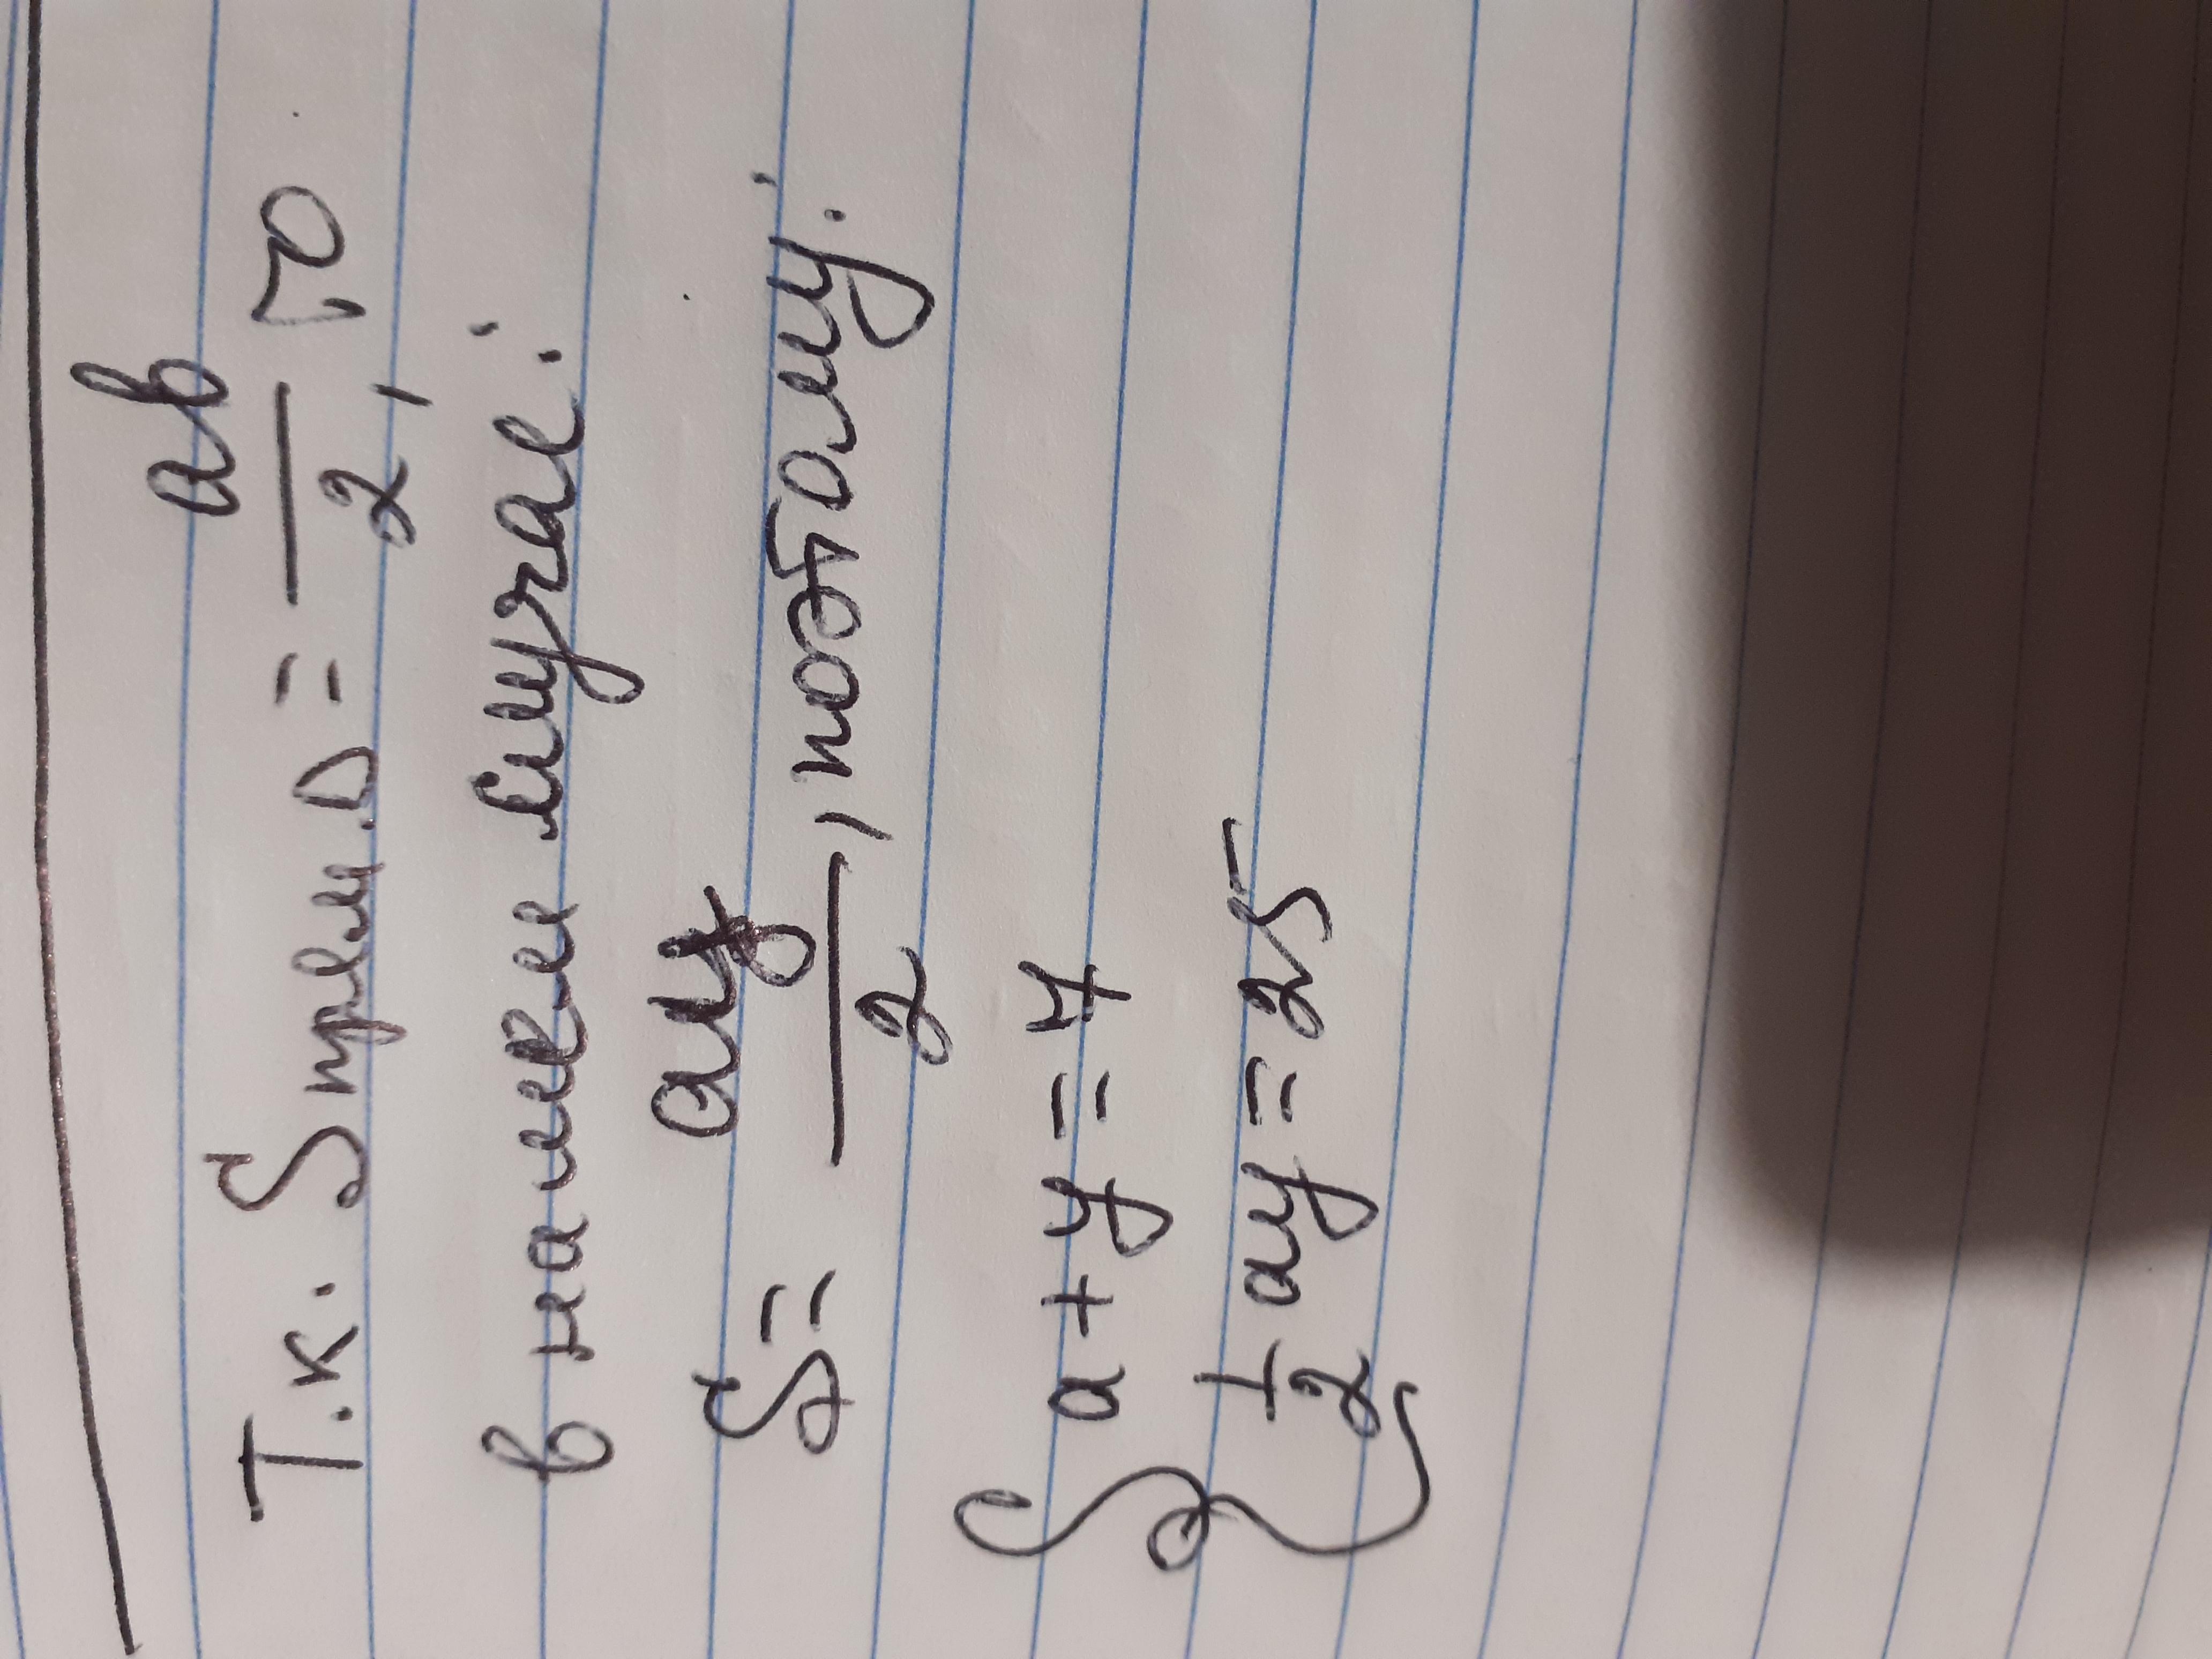 Т.к. Sпрям.△ = ab/2, то
в нашем случае:
S = ay/2, поэтому:
{ a + y = 7
1/2 ay = 25